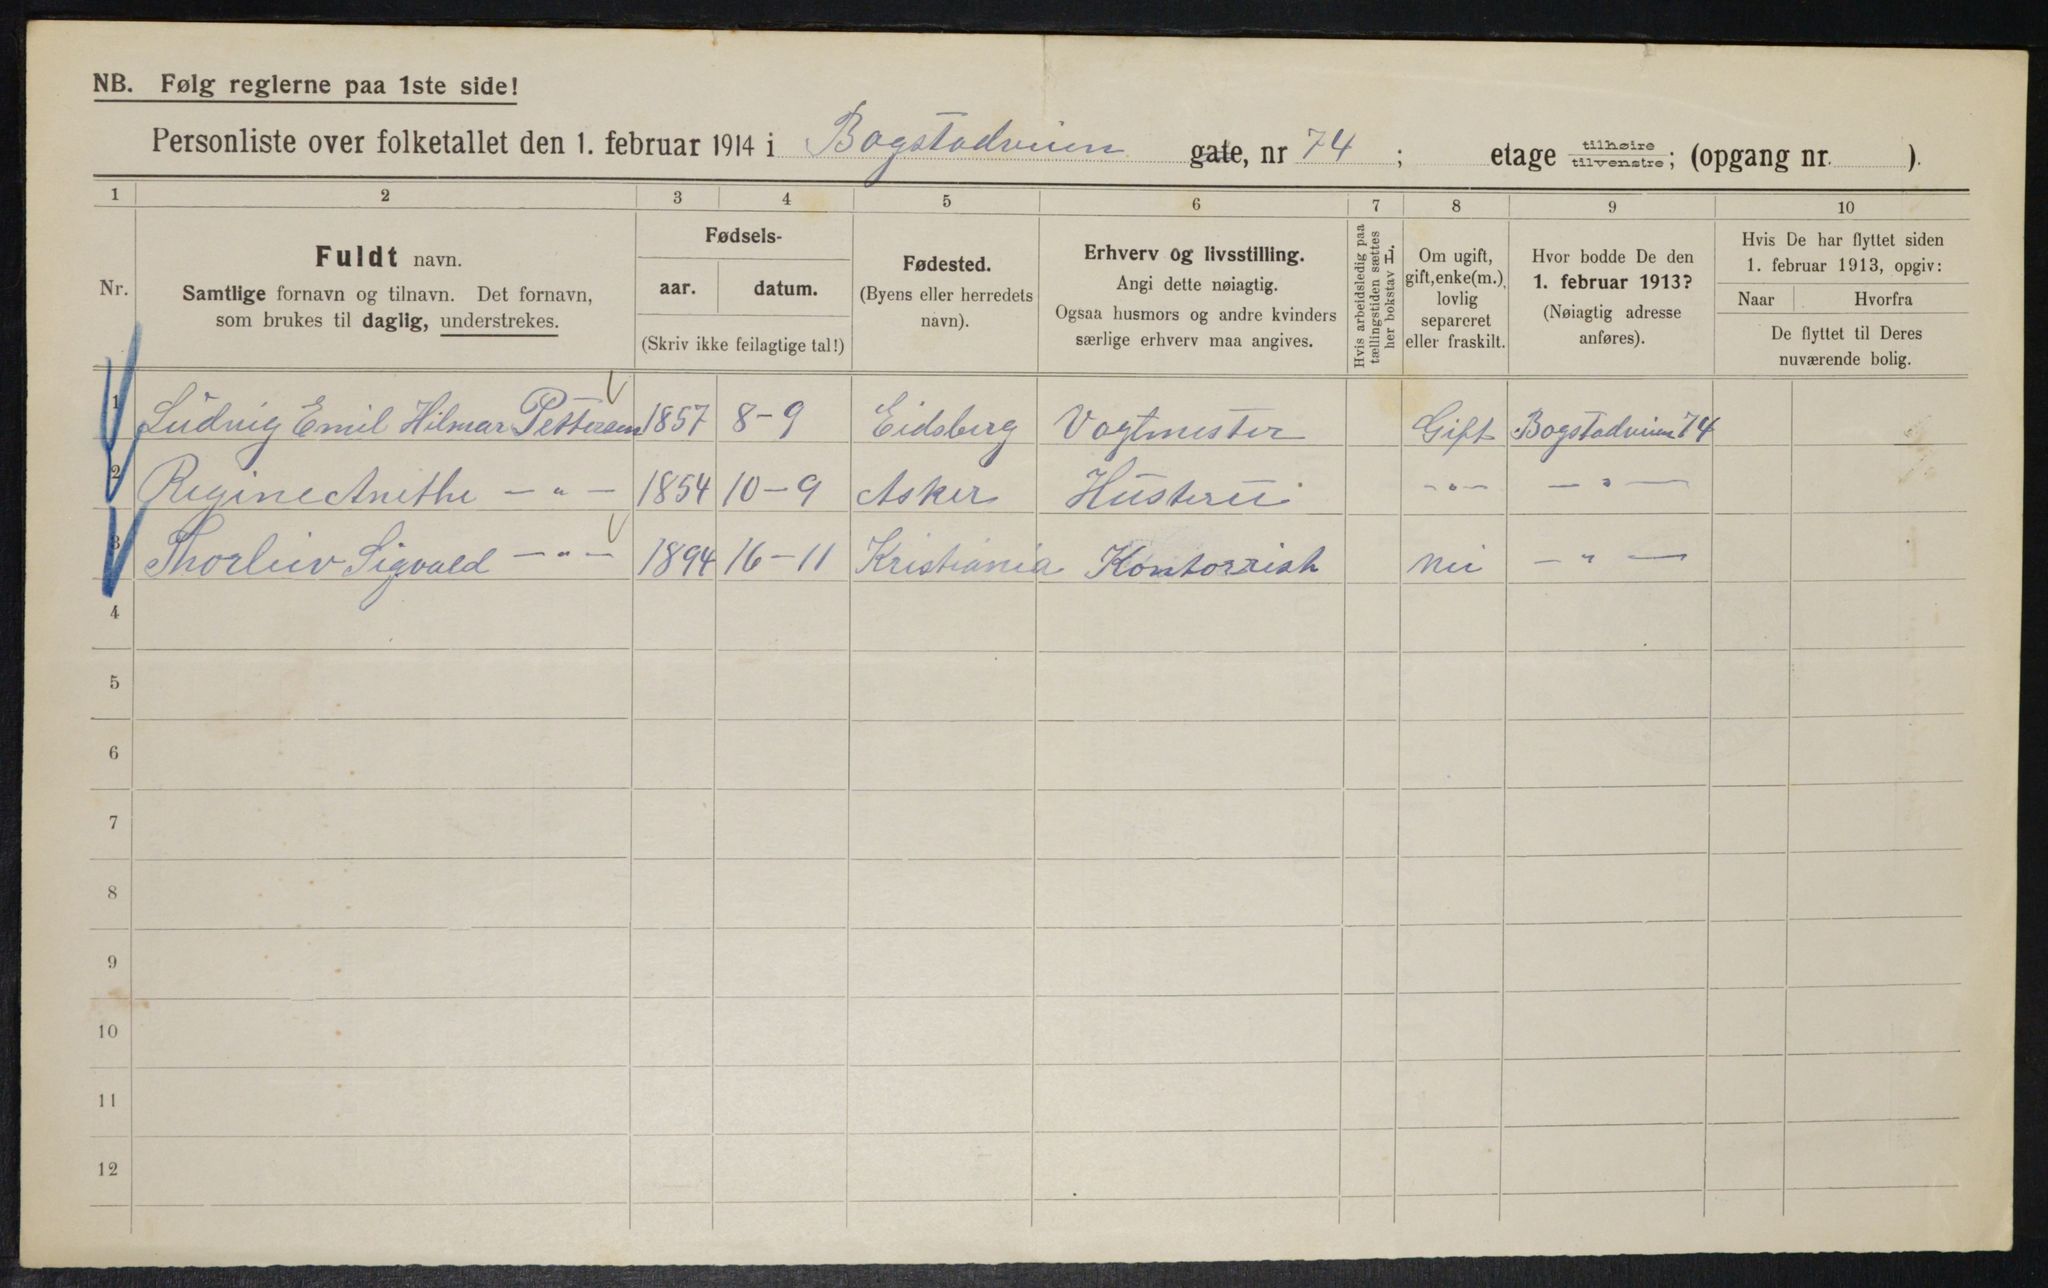 NB. Følg reglerne paa 1ste side!
Personliste over folketallet den 1. februar 1914 i Bogstadveien gate, nr 74 ; etage tilhøire tilvenstre; (opgang nr. ).
1 2 3 4 5 6 7 8 9 10
Nr.
Fuldt navn.
Samtlige fornavn og tilnavn. Det fornavn,
som brukes til daglig, understrekes.
Fødsels-
aar. datum.
(Skriv ikke feilagtige tal!)
Fødested.
(Byens eller herredets
navn).
Erhverv og livsstilling.
Angi dette nøiagtig.
Ogsaa husmors og andre kvinders
særlige erhverv maa angives.
Hvis arbeidsledig paa
tællingstiden sættes
her bokstav L.
Om ugift,
gift, enke(m.),
lovlig
separeret
eller fraskilt.
Hvor bodde De den
1. februar 1913?
(Nøiagtig adresse
anføres).
Hvis De har flyttet siden
1. februar 1913, opgiv:
Naar Hvorfra
De flyttet til Deres
nuværende bolig.
1 Ludvig Emil Hilmar Pettersen 1857 8-9 Eidsberg Vogtmester Gift Bogstadveien 74
2 Regine Anethe — " — 1854 10-9 Asker Hustru — " — — " —
3 Thorleiv Sigvald — " — 1894 16-11 Kristiania Kontorrist Nei — " —
4
5
6
7
8
9
10
11
12